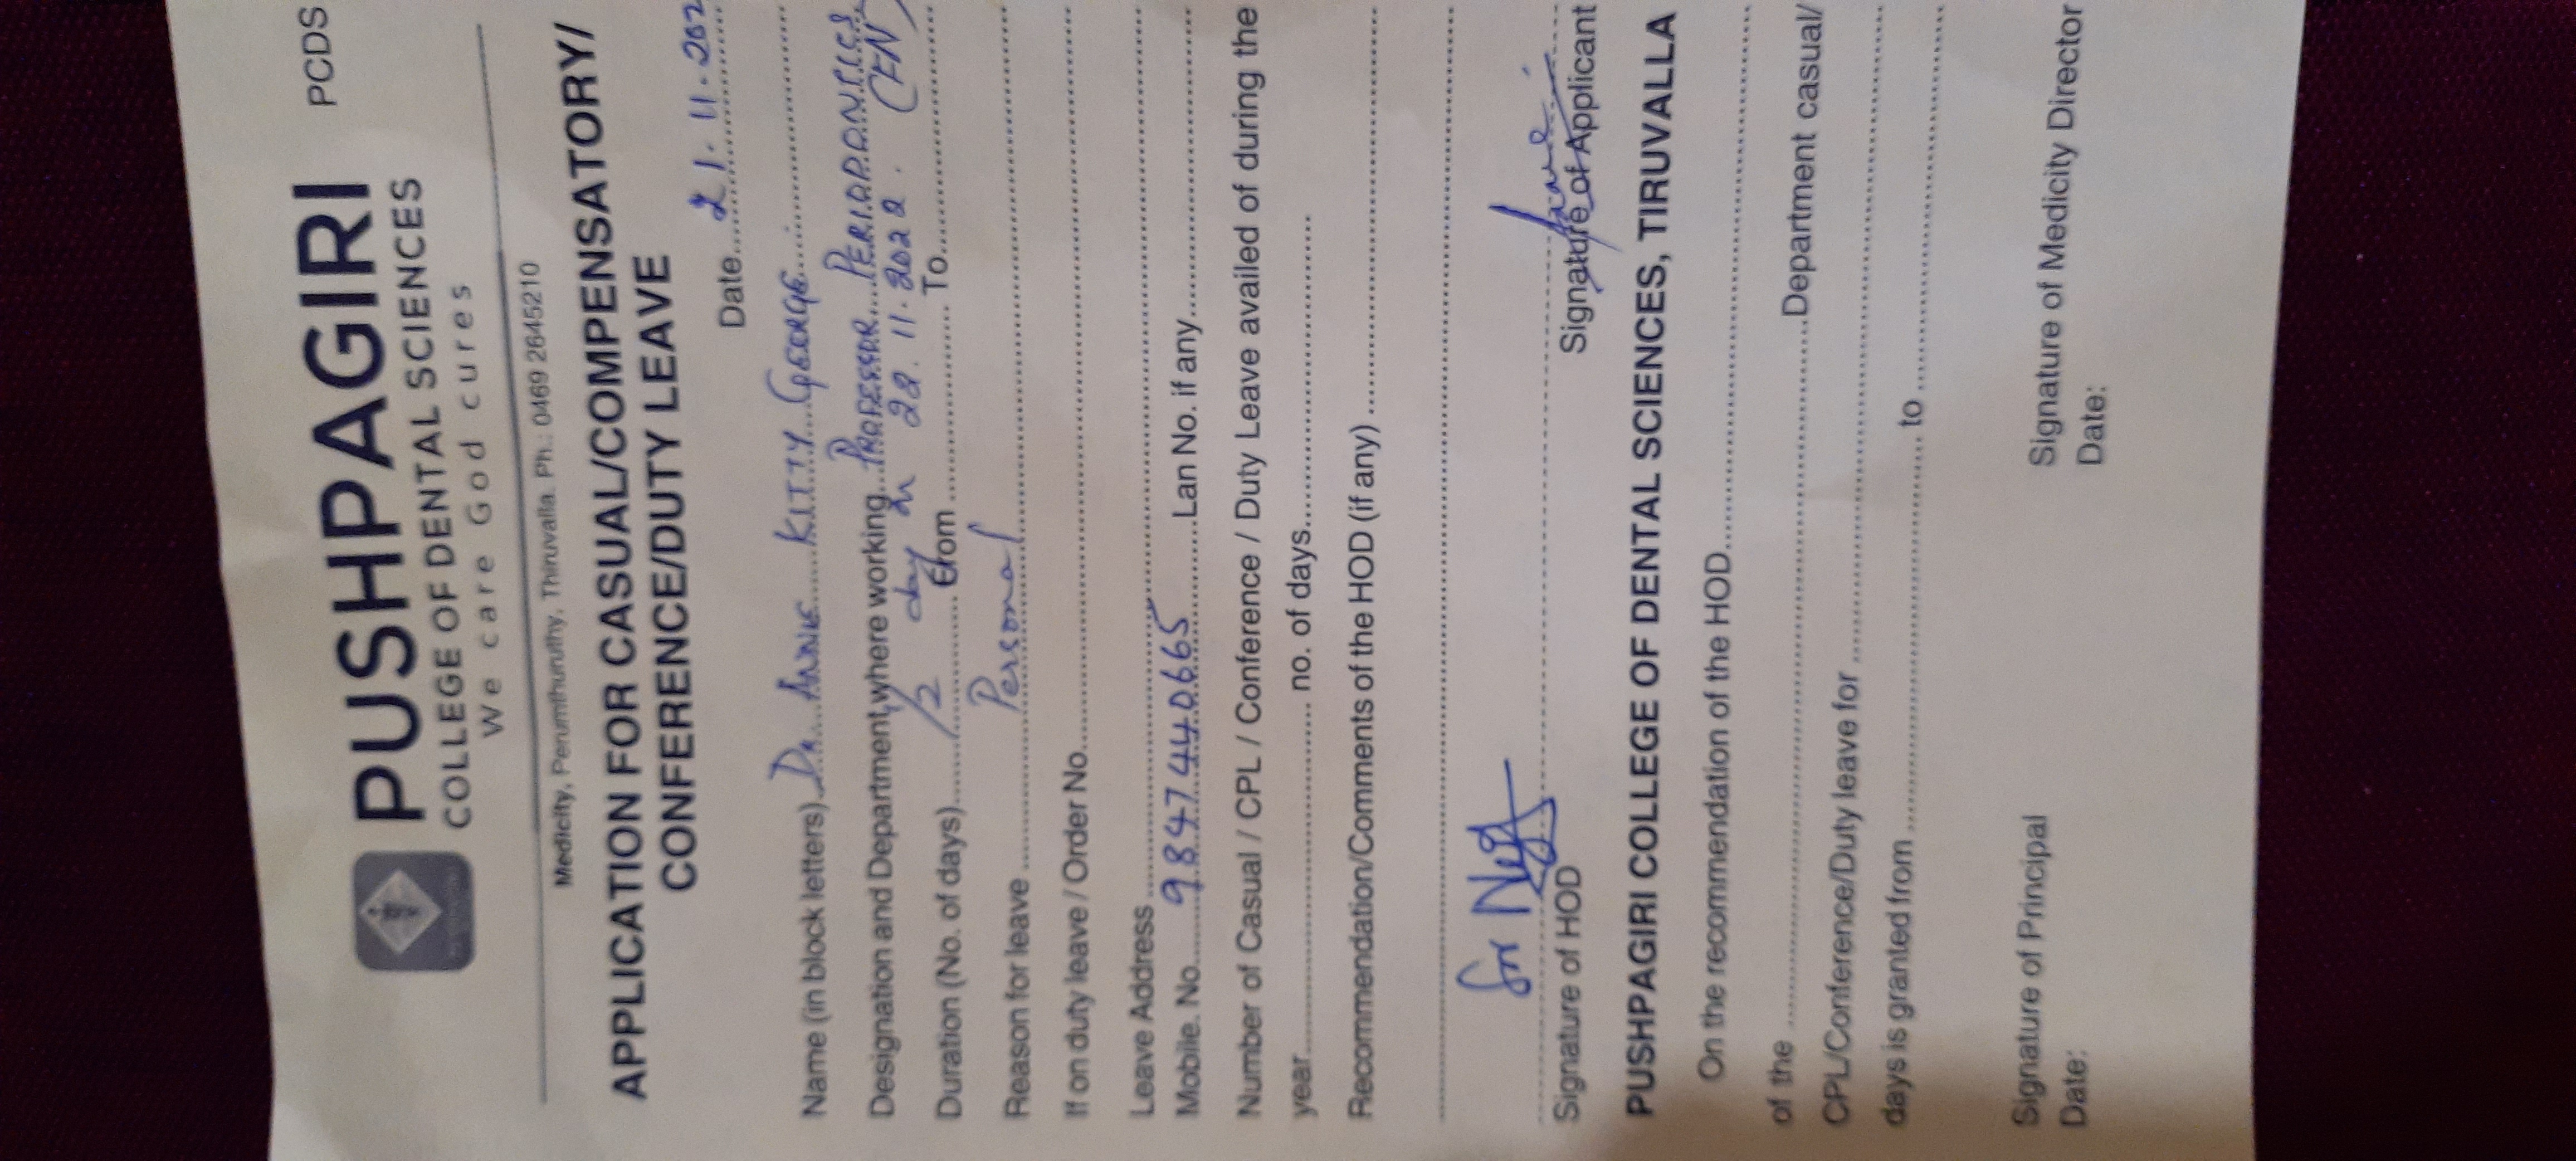 PCDS
PUSHPAGIRI
COLLEGE OF DENTAL SCIENCES
We care God cures
Medicity, Perumthuruthy, Thiruvalla. Ph.: 0469 2645210
APPLICATION FOR CASUAL/COMPENSATORY/
CONFERENCE/DUTY LEAVE
Date.... 21.11.202
Name (in block letters) DR ANNIE KITTY GEORGE
Designation and Department, where working... PROFESSOR PERIODONTICS
1/2 day on 22.11.2022. (FN)
Duration (No. of days)........ From ........ To........
Reason for leave ........ Personal
If on duty leave / Order No........
Leave Address ........
Mobile. No..... 9847440665 ........Lan No. if any........
Number of Casual / CPL / Conference / Duty Leave availed of during the
year........ no. of days........
Recommendation/Comments of the HOD (if any) ........
for
Signature of HOD Signature of Applicant
PUSHPAGIRI COLLEGE OF DENTAL SCIENCES, TIRUVALLA
On the recommendation of the HOD........
of the ........Department casual/
CPL/Conference/Duty leave for ........
days is granted from ........ to ........
Signature of Principal Signature of Medicity Director
Date: Date: